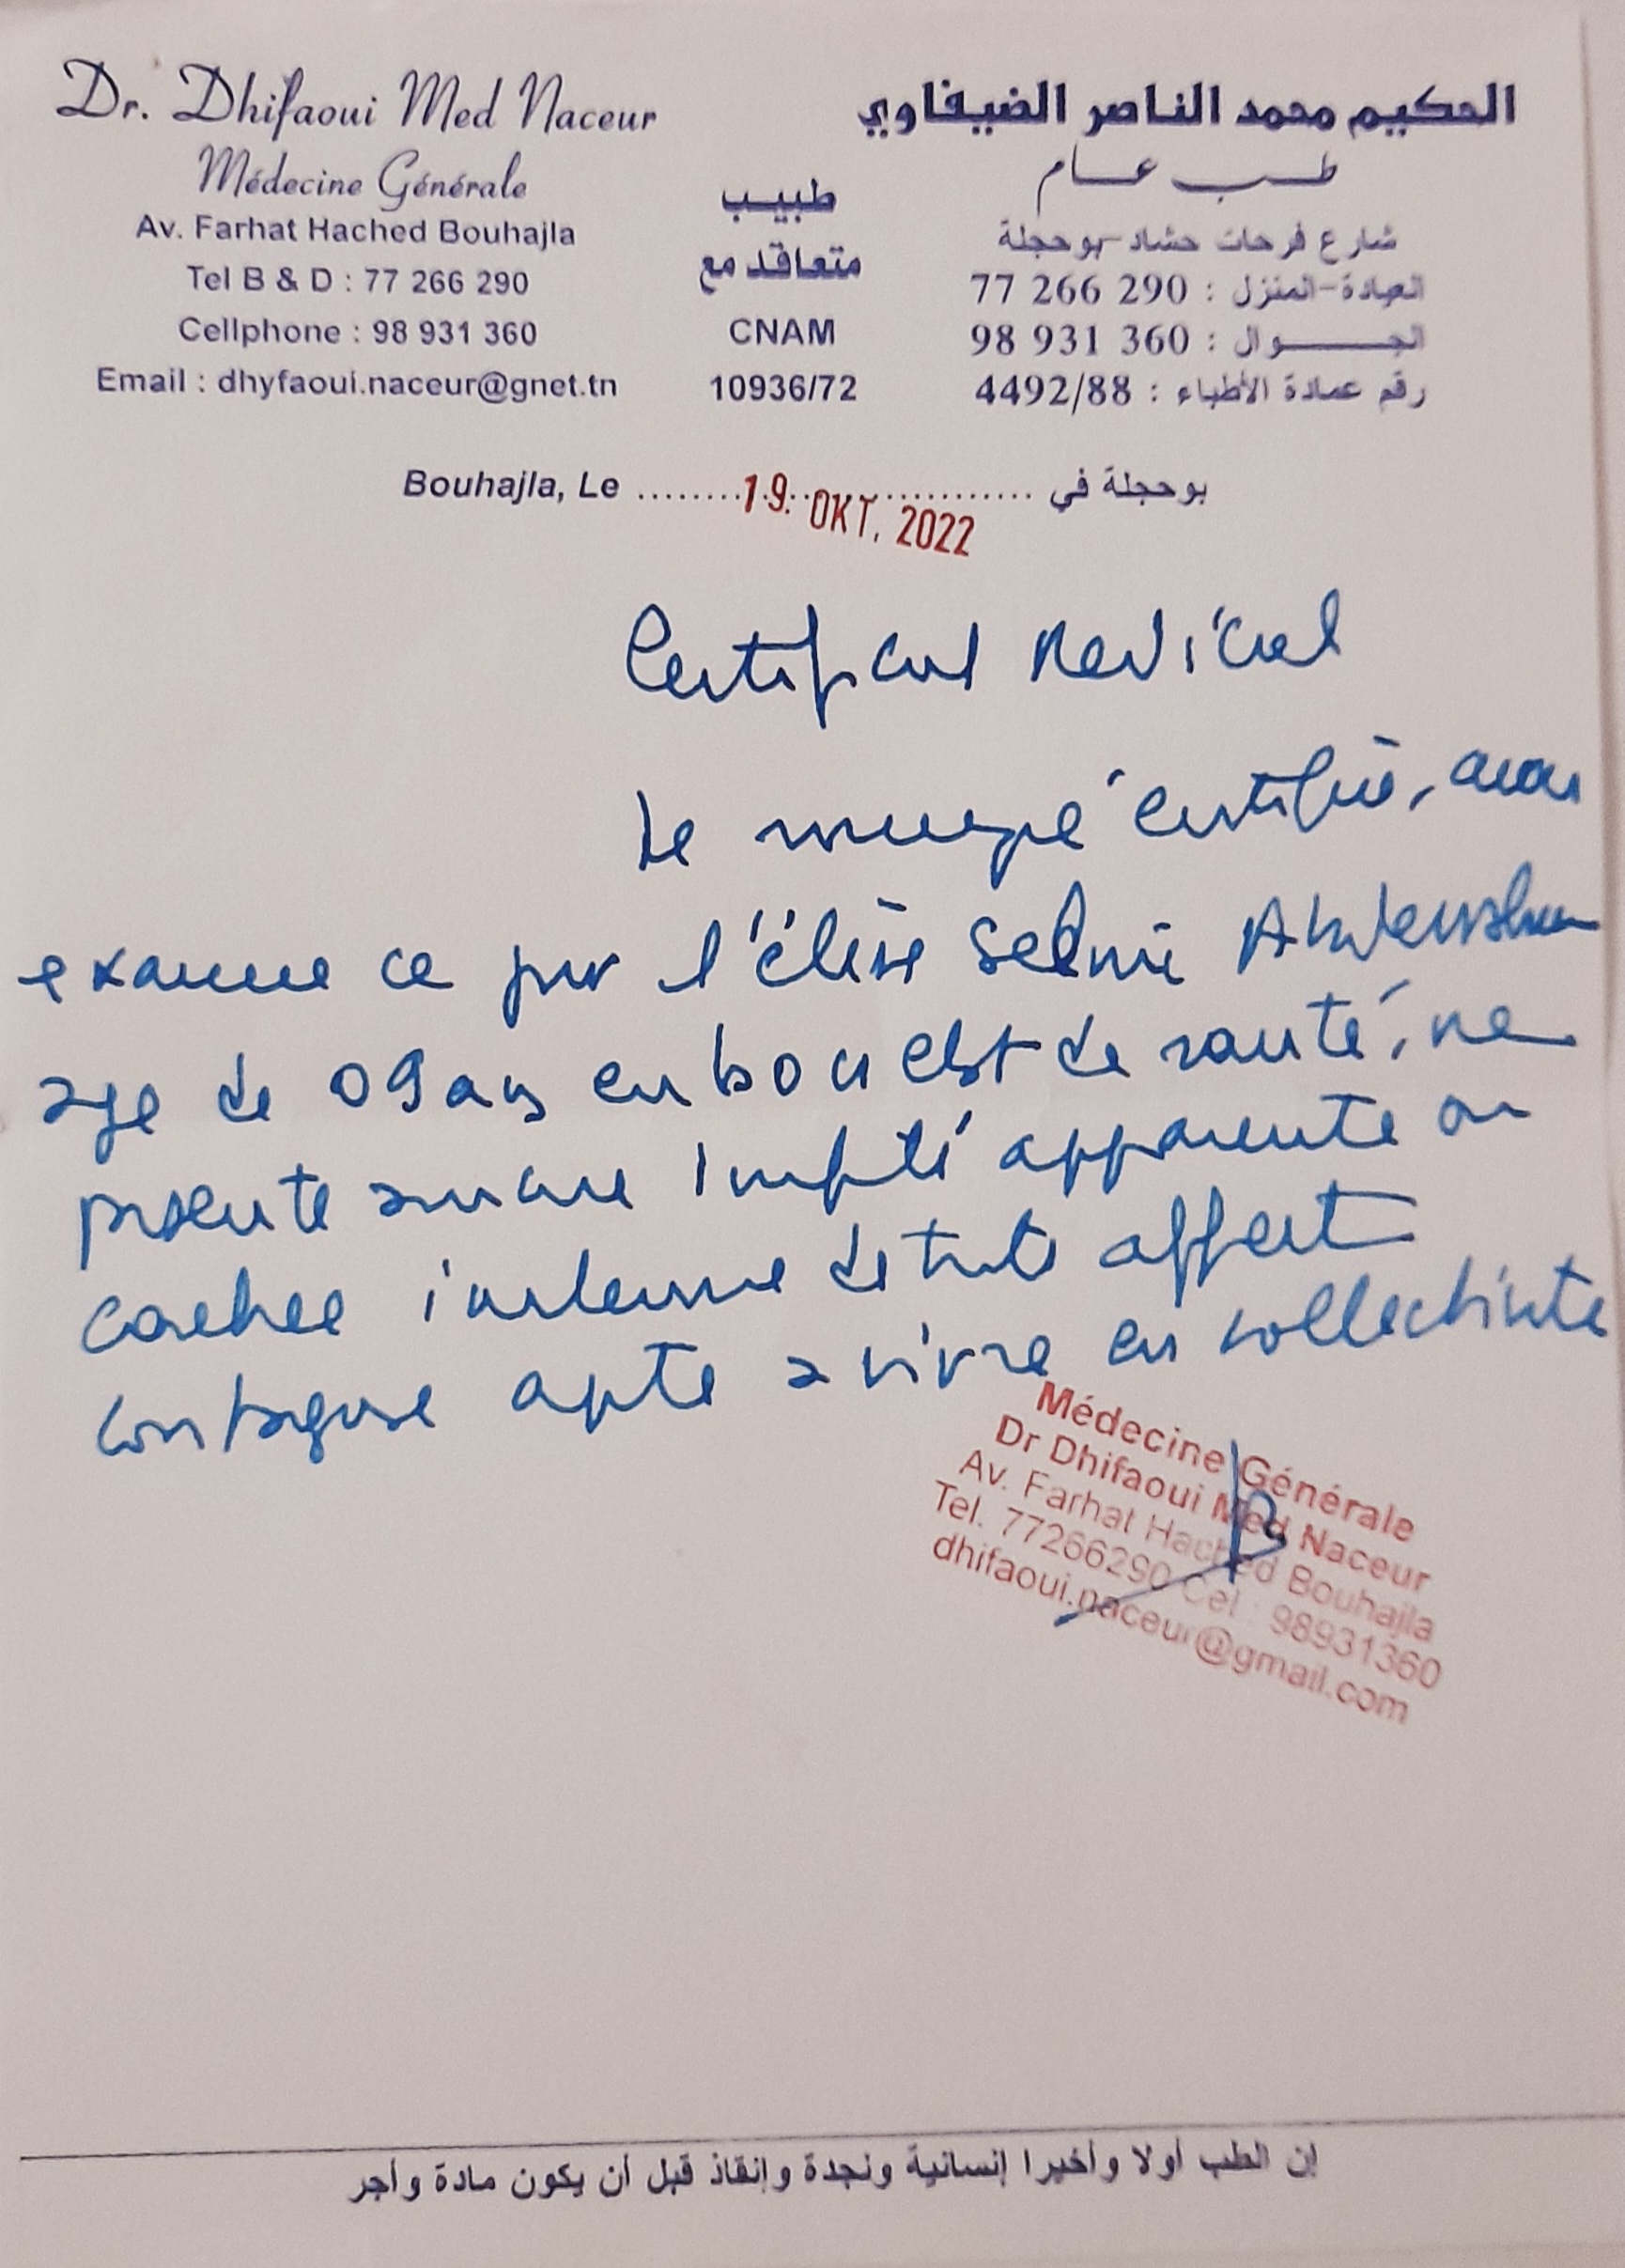 Dr. Dhifaoui Med Naceur
Médecine Générale
Av. Farhat Hached Bouhajla
Tel B & D : 77 266 290
Cellphone : 98 931 360
Email : dhyfaoui.naceur@gnet.tn
طبيب
متعاقد مع
CNAM
10936/72
الحكيم محمد الناصر الضيفاوي
طب عام
شارع فرحات حشاد-بوحجلة
العيادة-المنزل : 77 266 290
الجوال : 98 931 360
رقم عمادة الأطباء : 4492/88
Bouhajla, Le 19. OKT. 2022 بوحجلة في
Certificat Medical
Le certifie, avoir
examine ce jour l'élève Selmi
age de 09 ans en bon etat de santé, ne
presente aucune apparente ou
cachee indemne de toute affect
contagieuse apte a vivre en collectivite
Médecine Générale
Dr Dhifaoui Med Naceur
Av. Farhat Hached Bouhajla
Tel. 77266290 Cel : 98931360
dhifaoui.naceur@gmail.com
إن الطب أولا وأخيرا إنسانية ونجدة وإنقاذ قبل أن يكون مادة وأجر